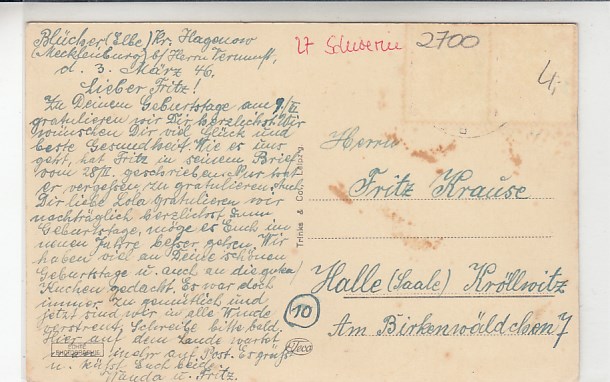 Blücher (Elbe) Kr. Hagenow
(Mecklenburg) b/ Herrn
d. 3. März 46.
Lieber Fritz!
Zu Deinem Geburtstage am
gratulieren wir Dir herzlichst. Wir
wünschen Dir viel Glück und
beste Gesundheit. Wie es uns
geht, hat Fritz in seinem Brief
vom 28/II. geschrieben. Nur hat
er vergessen, zu gratulieren. Auch
Dir liebe Lola gratulieren wir
nachträglich herzlichst zum
Geburtstage, möge es Euch im
neuen Jahre besser gehen. Wir
haben viel an Deine schönen
Geburtstage u. auch an die guten
Kuchen gedacht. Es war doch
immer zu gemütlich und
jetzt sind wir in alle Winde
verstreut. Schreibe bitte bald.
Hier auf dem Lande wartet
man mehr auf Post. Es grüßt
u. küsst Euch beide
Wanda u. Fritz.
Trinks & Co., Leipzig
27 Schwerin
2700
4,-
Herrn
Fritz Krause
Halle (Saale) Kröllwitz
Am Birkenwäldchen 7
10